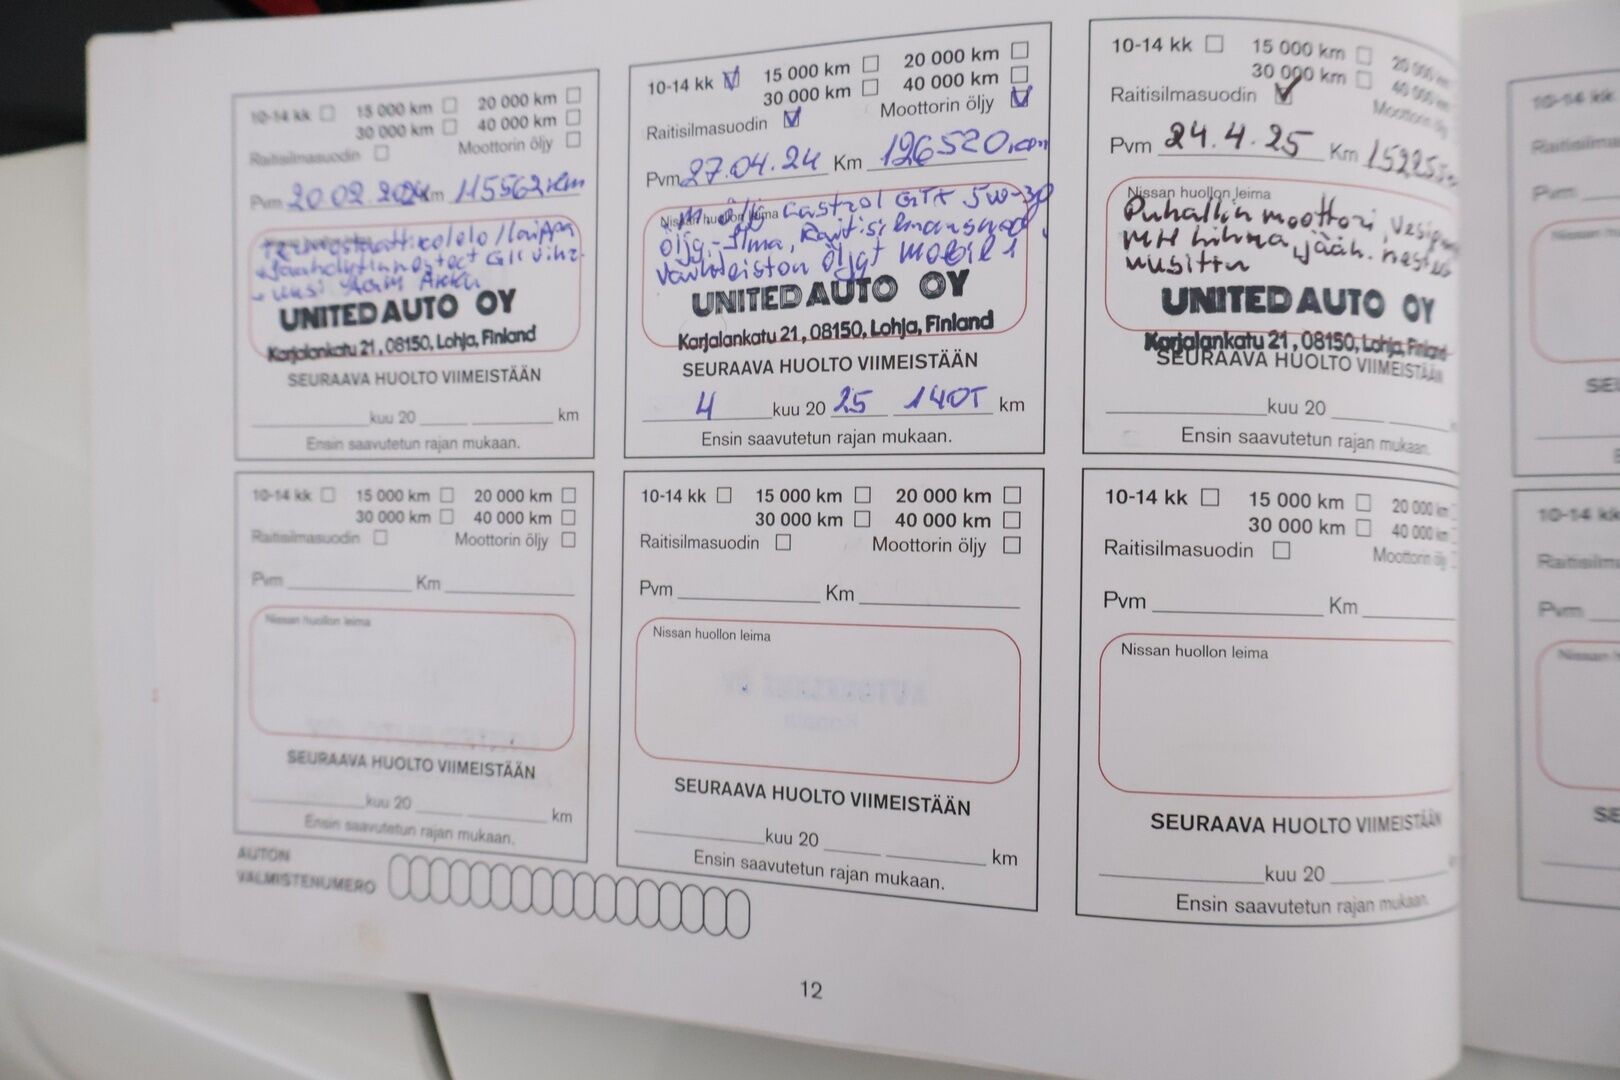 10-14 kk 15 000 km 20 000 km
30 000 km 40 000 km
Raitisilmasuodin Moottorin öljy
Pvm 20.02.2024 km 115562 km
UNITED AUTO OY
Karjalankatu 21, 08150, Lohja, Finland
SEURAAVA HUOLTO VIIMEISTÄÄN
kuu 20 km
Ensin saavutetun rajan mukaan.
10-14 kk 15 000 km 20 000 km
30 000 km 40 000 km
Raitisilmasuodin Moottorin öljy
Pvm 27.04.24 Km 126520
Nissan huollon leima
öljy castrol GTX 5w-30
öljy-Ilma, Raitisilmansuod.
Vaihteiston öljyt MOBIL 1
UNITED AUTO OY
Karjalankatu 21, 08150, Lohja, Finland
SEURAAVA HUOLTO VIIMEISTÄÄN
4 kuu 20 25 140T km
Ensin saavutetun rajan mukaan.
10-14 kk 15 000 km 20 000 km
30 000 km 40 000 km
Raitisilmasuodin Moottorin öljy
Pvm 24.4.25 Km
Nissan huollon leima
Puhallin moottori,
MH hihna, jääh.
uusittu
UNITED AUTO OY
Karjalankatu 21, 08150, Lohja, Finland
SEURAAVA HUOLTO VIIMEISTÄÄN
kuu 20
Ensin saavutetun rajan mukaan.
10-14 kk 15 000 km 20 000 km
30 000 km 40 000 km
Raitisilmasuodin Moottorin öljy
Pvm Km
Nissan huollon leima
SEURAAVA HUOLTO VIIMEISTÄÄN
kuu 20 km
Ensin saavutetun rajan mukaan.
10-14 kk 15 000 km 20 000 km
30 000 km 40 000 km
Raitisilmasuodin Moottorin öljy
Pvm Km
Nissan huollon leima
SEURAAVA HUOLTO VIIMEISTÄÄN
kuu 20 km
Ensin saavutetun rajan mukaan.
10-14 kk 15 000 km 20 000 km
30 000 km 40 000 km
Raitisilmasuodin Moottorin öljy
Pvm Km
Nissan huollon leima
SEURAAVA HUOLTO VIIMEISTÄÄN
kuu 20
Ensin saavutetun rajan mukaan.
AUTON
VALMISTENUMERO
12